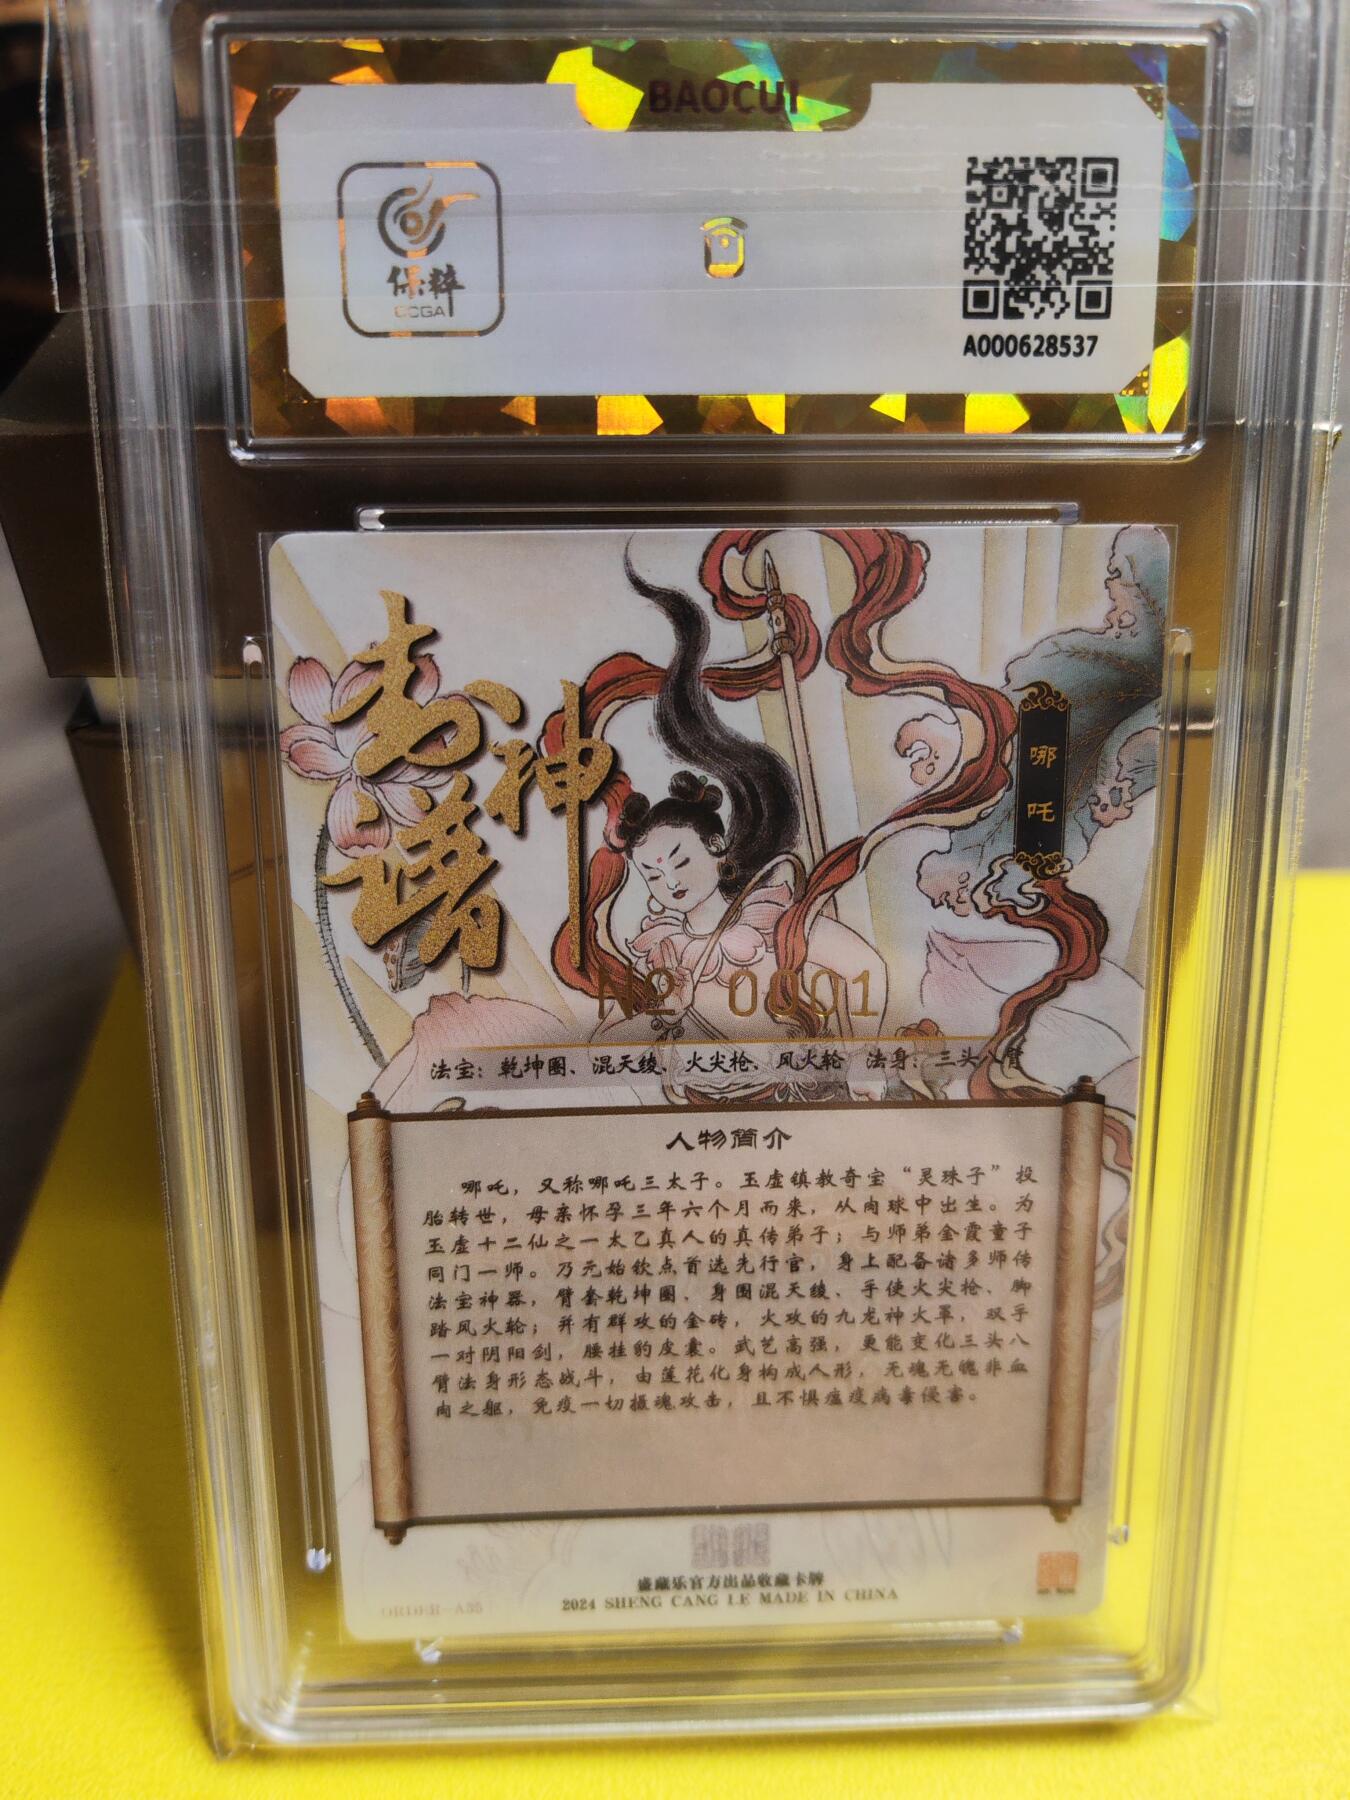 BAOCUI
保粹
CCGA
A000628537
封神
谱
哪吒
№ 0001
法宝：乾坤圈、混天绫、火尖枪、风火轮 法身：三头八臂
人物简介
哪吒，又称哪吒三太子。玉虚镇教奇宝“灵珠子”投
胎转世，母亲怀孕三年六个月而来，从肉球中出生。为
玉虚十二仙之一太乙真人的真传弟子；与师弟金霞童子
同门一师。乃元始钦点首选先行官，身上配备诸多师传
法宝神器，臂套乾坤圈、身围混天绫、手使火尖枪、脚
踏风火轮；并有群攻的金砖，火攻的九龙神火罩，双手
一对阴阳剑，腰挂豹皮囊。武艺高强，更能变化三头八
臂法身形态战斗，由莲花化身构成人形，无魂无魄非血
肉之躯，免疫一切摄魂攻击，且不惧瘟疫病毒侵害。
盛藏乐官方出品收藏卡牌
2024 SHENG CANG LE MADE IN CHINA
ORDER-A35